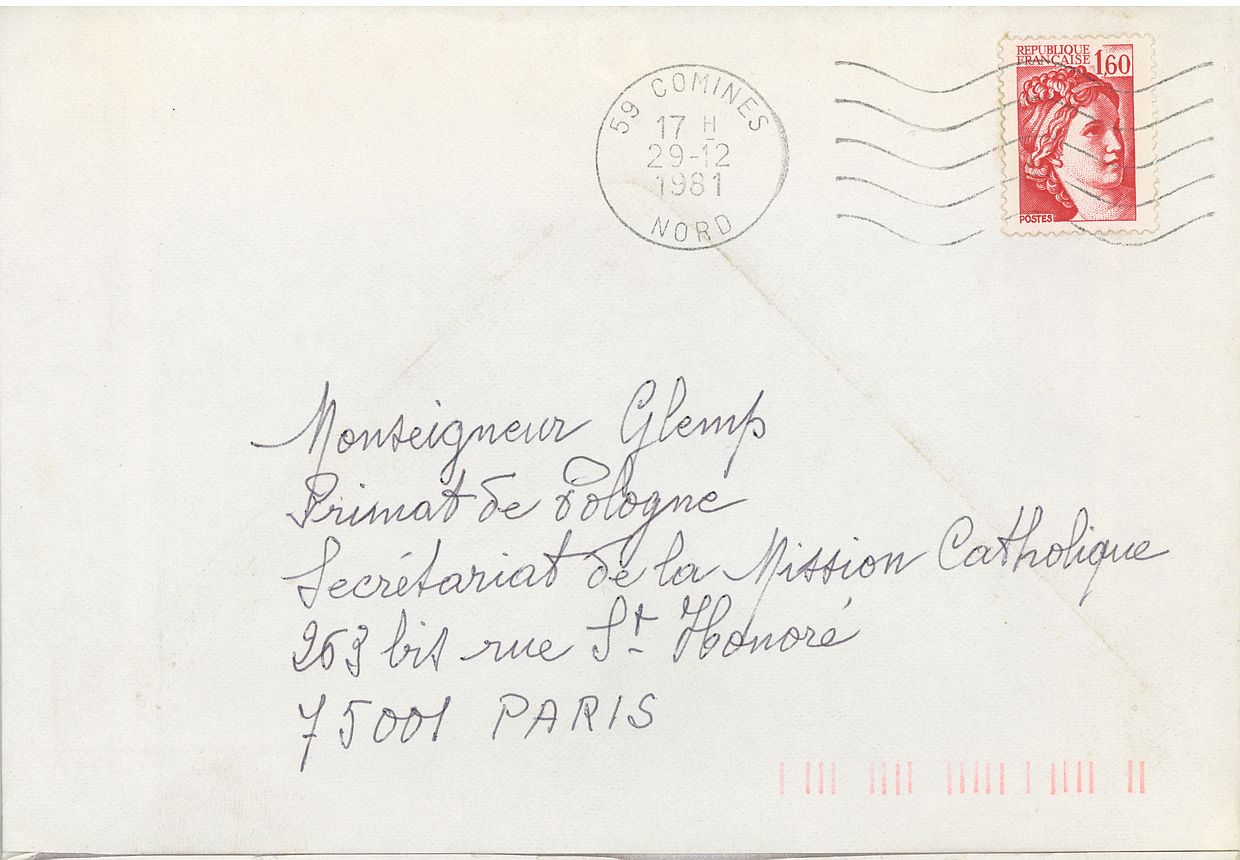 59 COMINES
17 H
29-12
1981
NORD
REPUBLIQUE
FRANÇAISE
1,60
POSTES
Monseigneur Glemp
Primat de Pologne
Secrétariat de la Mission Catholique
263 bis rue St Honoré
75001 PARIS